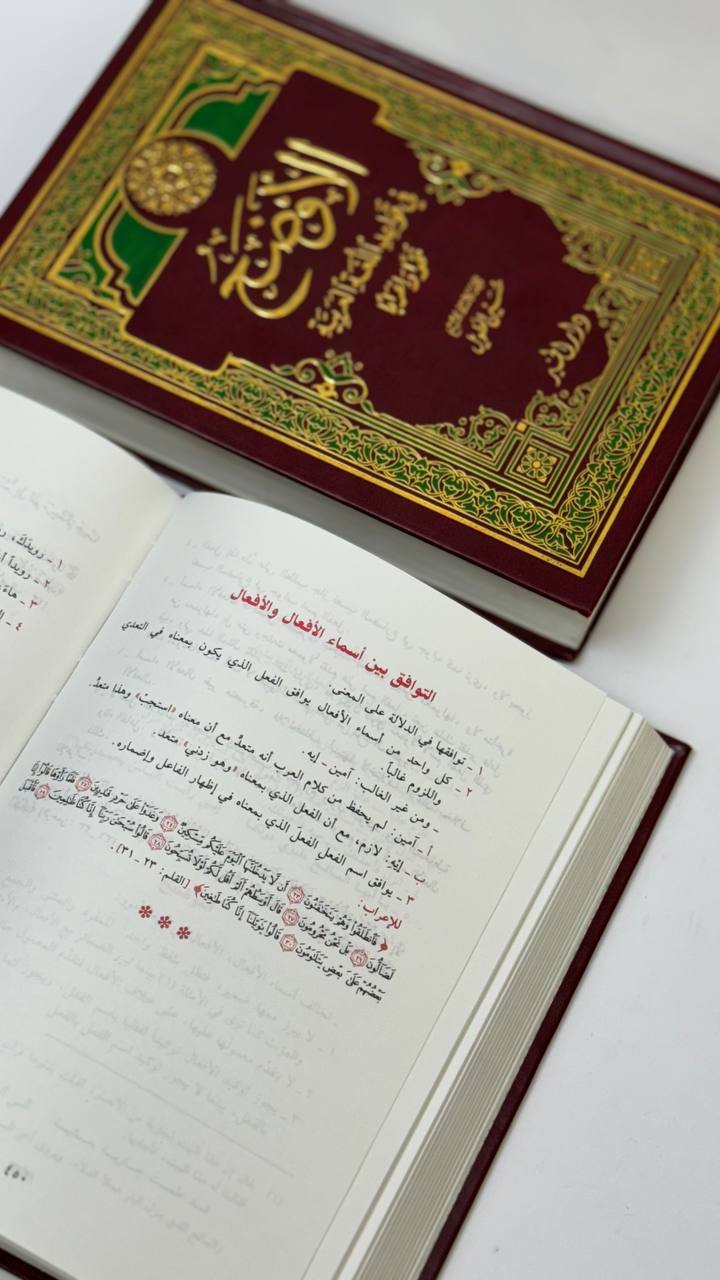 الأوضح
في قواعد اللغة العربية
نحواً وصرفاً
١ - رويدك،
٢ - رويداً
٣ - هاءَ
٤ -
التوافق بين أسماء الأفعال والأفعال
١ - توافقها في الدلالة على المعنى.
٢ - كل واحد من أسماء الأفعال يوافق الفعل الذي يكون بمعناه في التعدي
واللزوم غالباً.
- ومن غير الغالب: آمين - إيه.
أ - آمين: لم يحفظ من كلام العرب أنه متعدٍّ مع أن معناه «استجبْ» وهذا متعدٍّ.
ب - إيْه: لازم، مع أن الفعل الذي بمعناه «وهو زدني» متعد.
٣ - يوافق اسم الفعل الفعلَ الذي بمعناه في إظهار الفاعل وإضماره.
للإعراب:
﴿فَٱنطَلَقُوا۟ وَهُمْ يَتَخَـٰفَتُونَ ٢٣ أَن لَّا يَدْخُلَنَّهَا ٱلْيَوْمَ عَلَيْكُم مِّسْكِينٌ ٢٤ وَغَدَوْا۟ عَلَىٰ حَرْدٍ قَـٰدِرِينَ ٢٥ فَلَمَّا رَأَوْهَا قَالُوٓا۟ إِنَّا
لَضَآلُّونَ ٢٦ بَلْ نَحْنُ مَحْرُومُونَ ٢٧ قَالَ أَوْسَطُهُمْ أَلَمْ أَقُل لَّكُمْ لَوْلَا تُسَبِّحُونَ ٢٨ قَالُوا۟ سُبْحَـٰنَ رَبِّنَآ إِنَّا كُنَّا ظَـٰلِمِينَ ٢٩ فَأَقْبَلَ
بَعْضُهُمْ عَلَىٰ بَعْضٍ يَتَلَـٰوَمُونَ ٣٠ قَالُوا۟ يَـٰوَيْلَنَآ إِنَّا كُنَّا طَـٰغِينَ﴾ [القلم: ٢٣ - ٣١].
٤٥٠